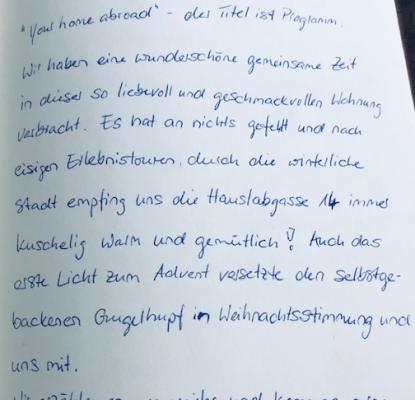 "Your home abroad" - der Titel ist Programm.
Wir haben eine wunderschöne gemeinsame Zeit
in dieser so liebevoll und geschmackvollen Wohnung
verbracht. Es hat an nichts gefehlt und nach
eisigen Erlebnistouren, durch die winterliche
Stadt empfing uns die Hauslabgasse 14 immer
kuschelig warm und gemütlich! Auch das
erste Licht zum Advent versetzte den selbstge-
backenen Gugelhupf in Weihnachtsstimmung und
uns mit.